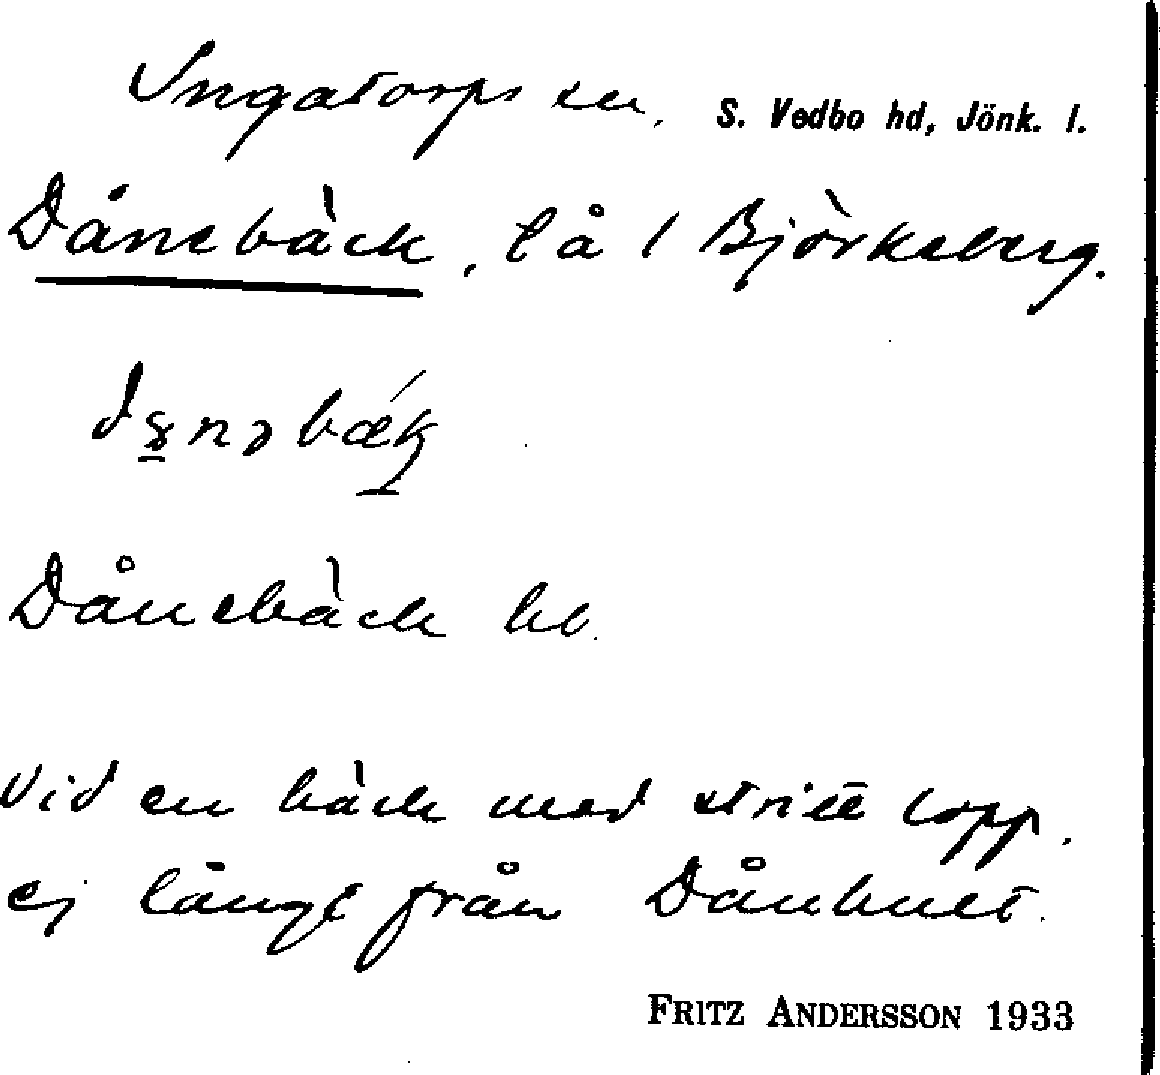 Ingatorps sn. S. Vedbo hd, Jönk. l.
Dånebäck, lå / Björkeberg.
Dånebäck hb.
Vid en bäck med stritt lopp,
ej långt från Dånhult.
FRITZ ANDERSSON 1933